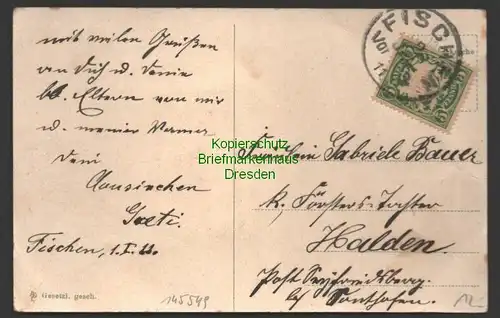 mit vielen Grüßen
an Dich u. Deine
lb. Eltern von mir
u. meiner Mama
Dein
Gusti.
Fischen, 1.I.
Gesetzl. gesch.
145549
FISCHEN
Kopierschutz
Briefmarkenhaus
Dresden
Fräulein Gabriele Bauer
k. Försters-Tochter
Halden.
Post Seyfriedsberg.
b/ Sonthofen.
12